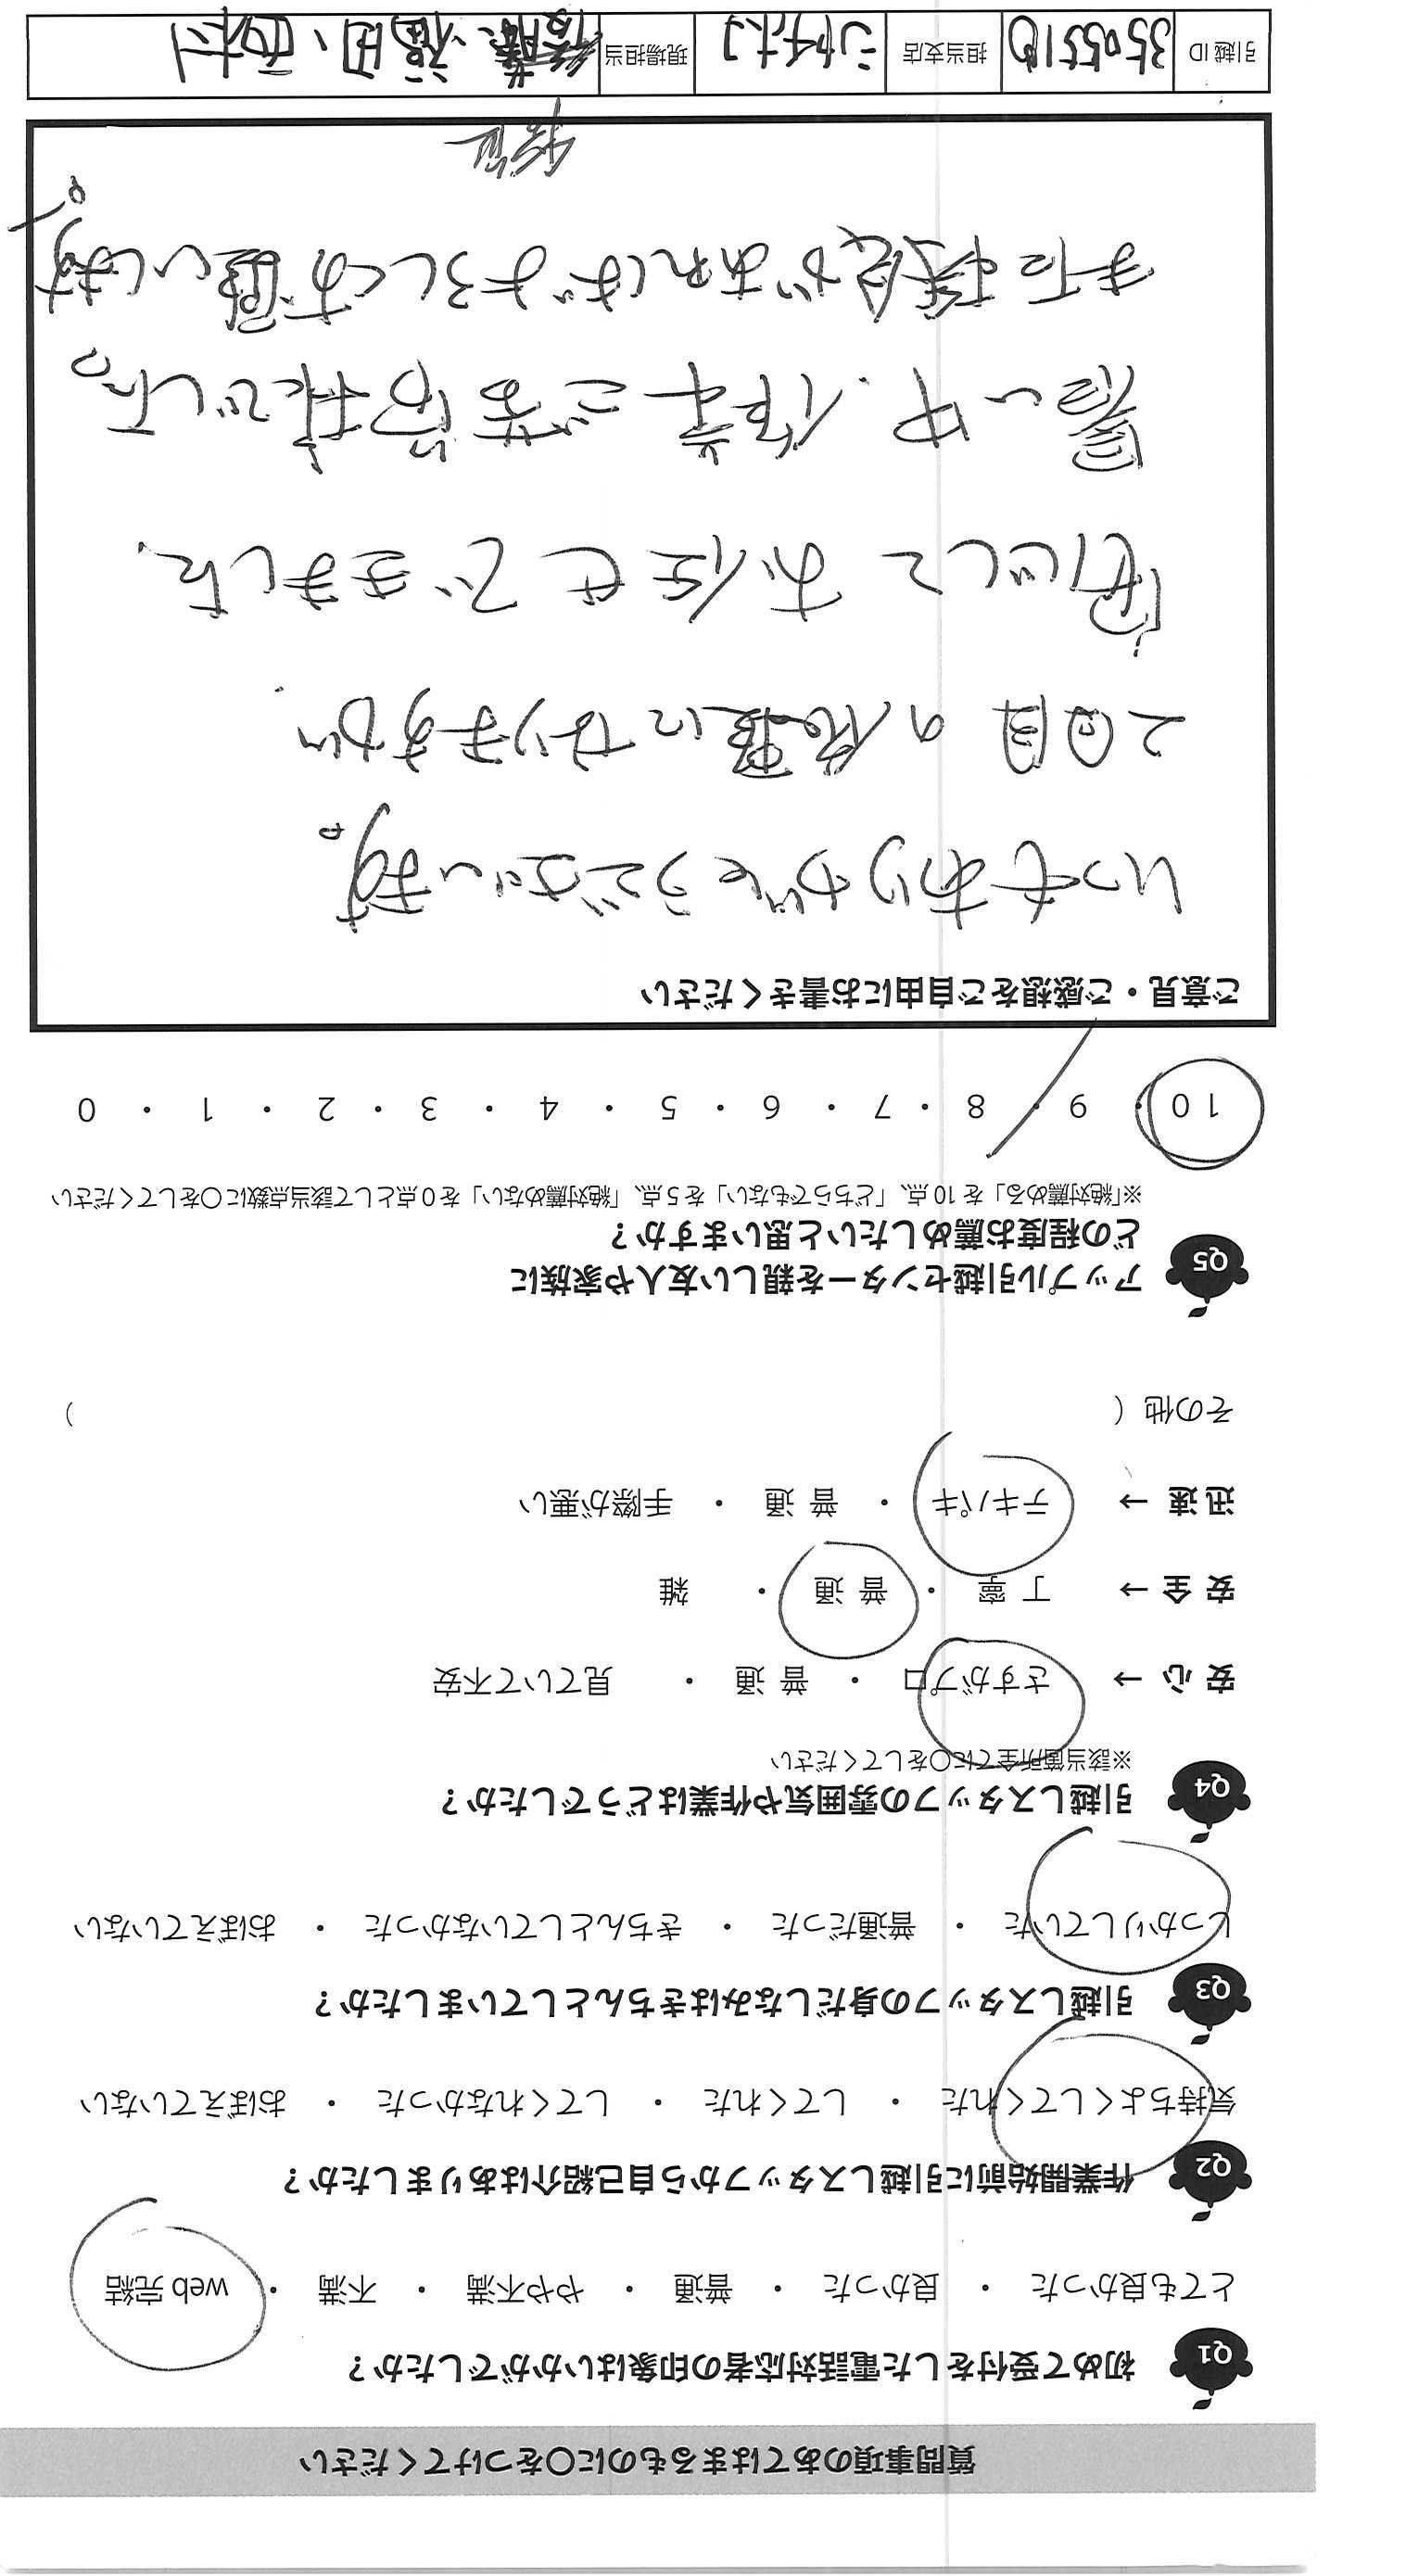 質問事項のあてはまるものに〇をつけてください
Q1 初めて受付をした電話対応者の印象はいかがでしたか？
とても良かった ・ 良かった ・ 普通 ・ やや不満 ・ 不満 ・ web 完結
Q2 作業開始前に引越しスタッフから自己紹介はありましたか？
気持ちよくしてくれた ・ してくれた ・ してくれなかった ・ おぼえていない
Q3 引越しスタッフの身だしなみはきちんとしていましたか？
しっかりしていた ・ 普通だった ・ きちんとしていなかった ・ おぼえていない
Q4 引越しスタッフの雰囲気や作業はどうでしたか？
※該当箇所全てに〇をしてください
安 心 → さすがプロ ・ 普 通 ・ 見ていて不安
安 全 → 丁 寧 ・ 普 通 ・ 雑
迅 速 → テキパキ ・ 普 通 ・ 手際が悪い
その他（ ）
Q5 アップル引越センターを親しい友人や家族に
どの程度お薦めしたいと思いますか？
※「絶対薦める」を 10 点、「どちらでもない」を 5 点、「絶対薦めない」を 0 点として該当点数に〇をしてください
10 ・ 9 ・ 8 ・ 7 ・ 6 ・ 5 ・ 4 ・ 3 ・ 2 ・ 1 ・ 0
ご意見・ご感想をご自由にお書きください
いつもありがとうございます。
2回目の依頼になりますが、
安心して お任せできました。
暑い中、作業ご苦労様でした。
また機会があればよろしくお願いします。
引越 ID 担当支店 シャチホコ 現場担当 後藤、福田、西村